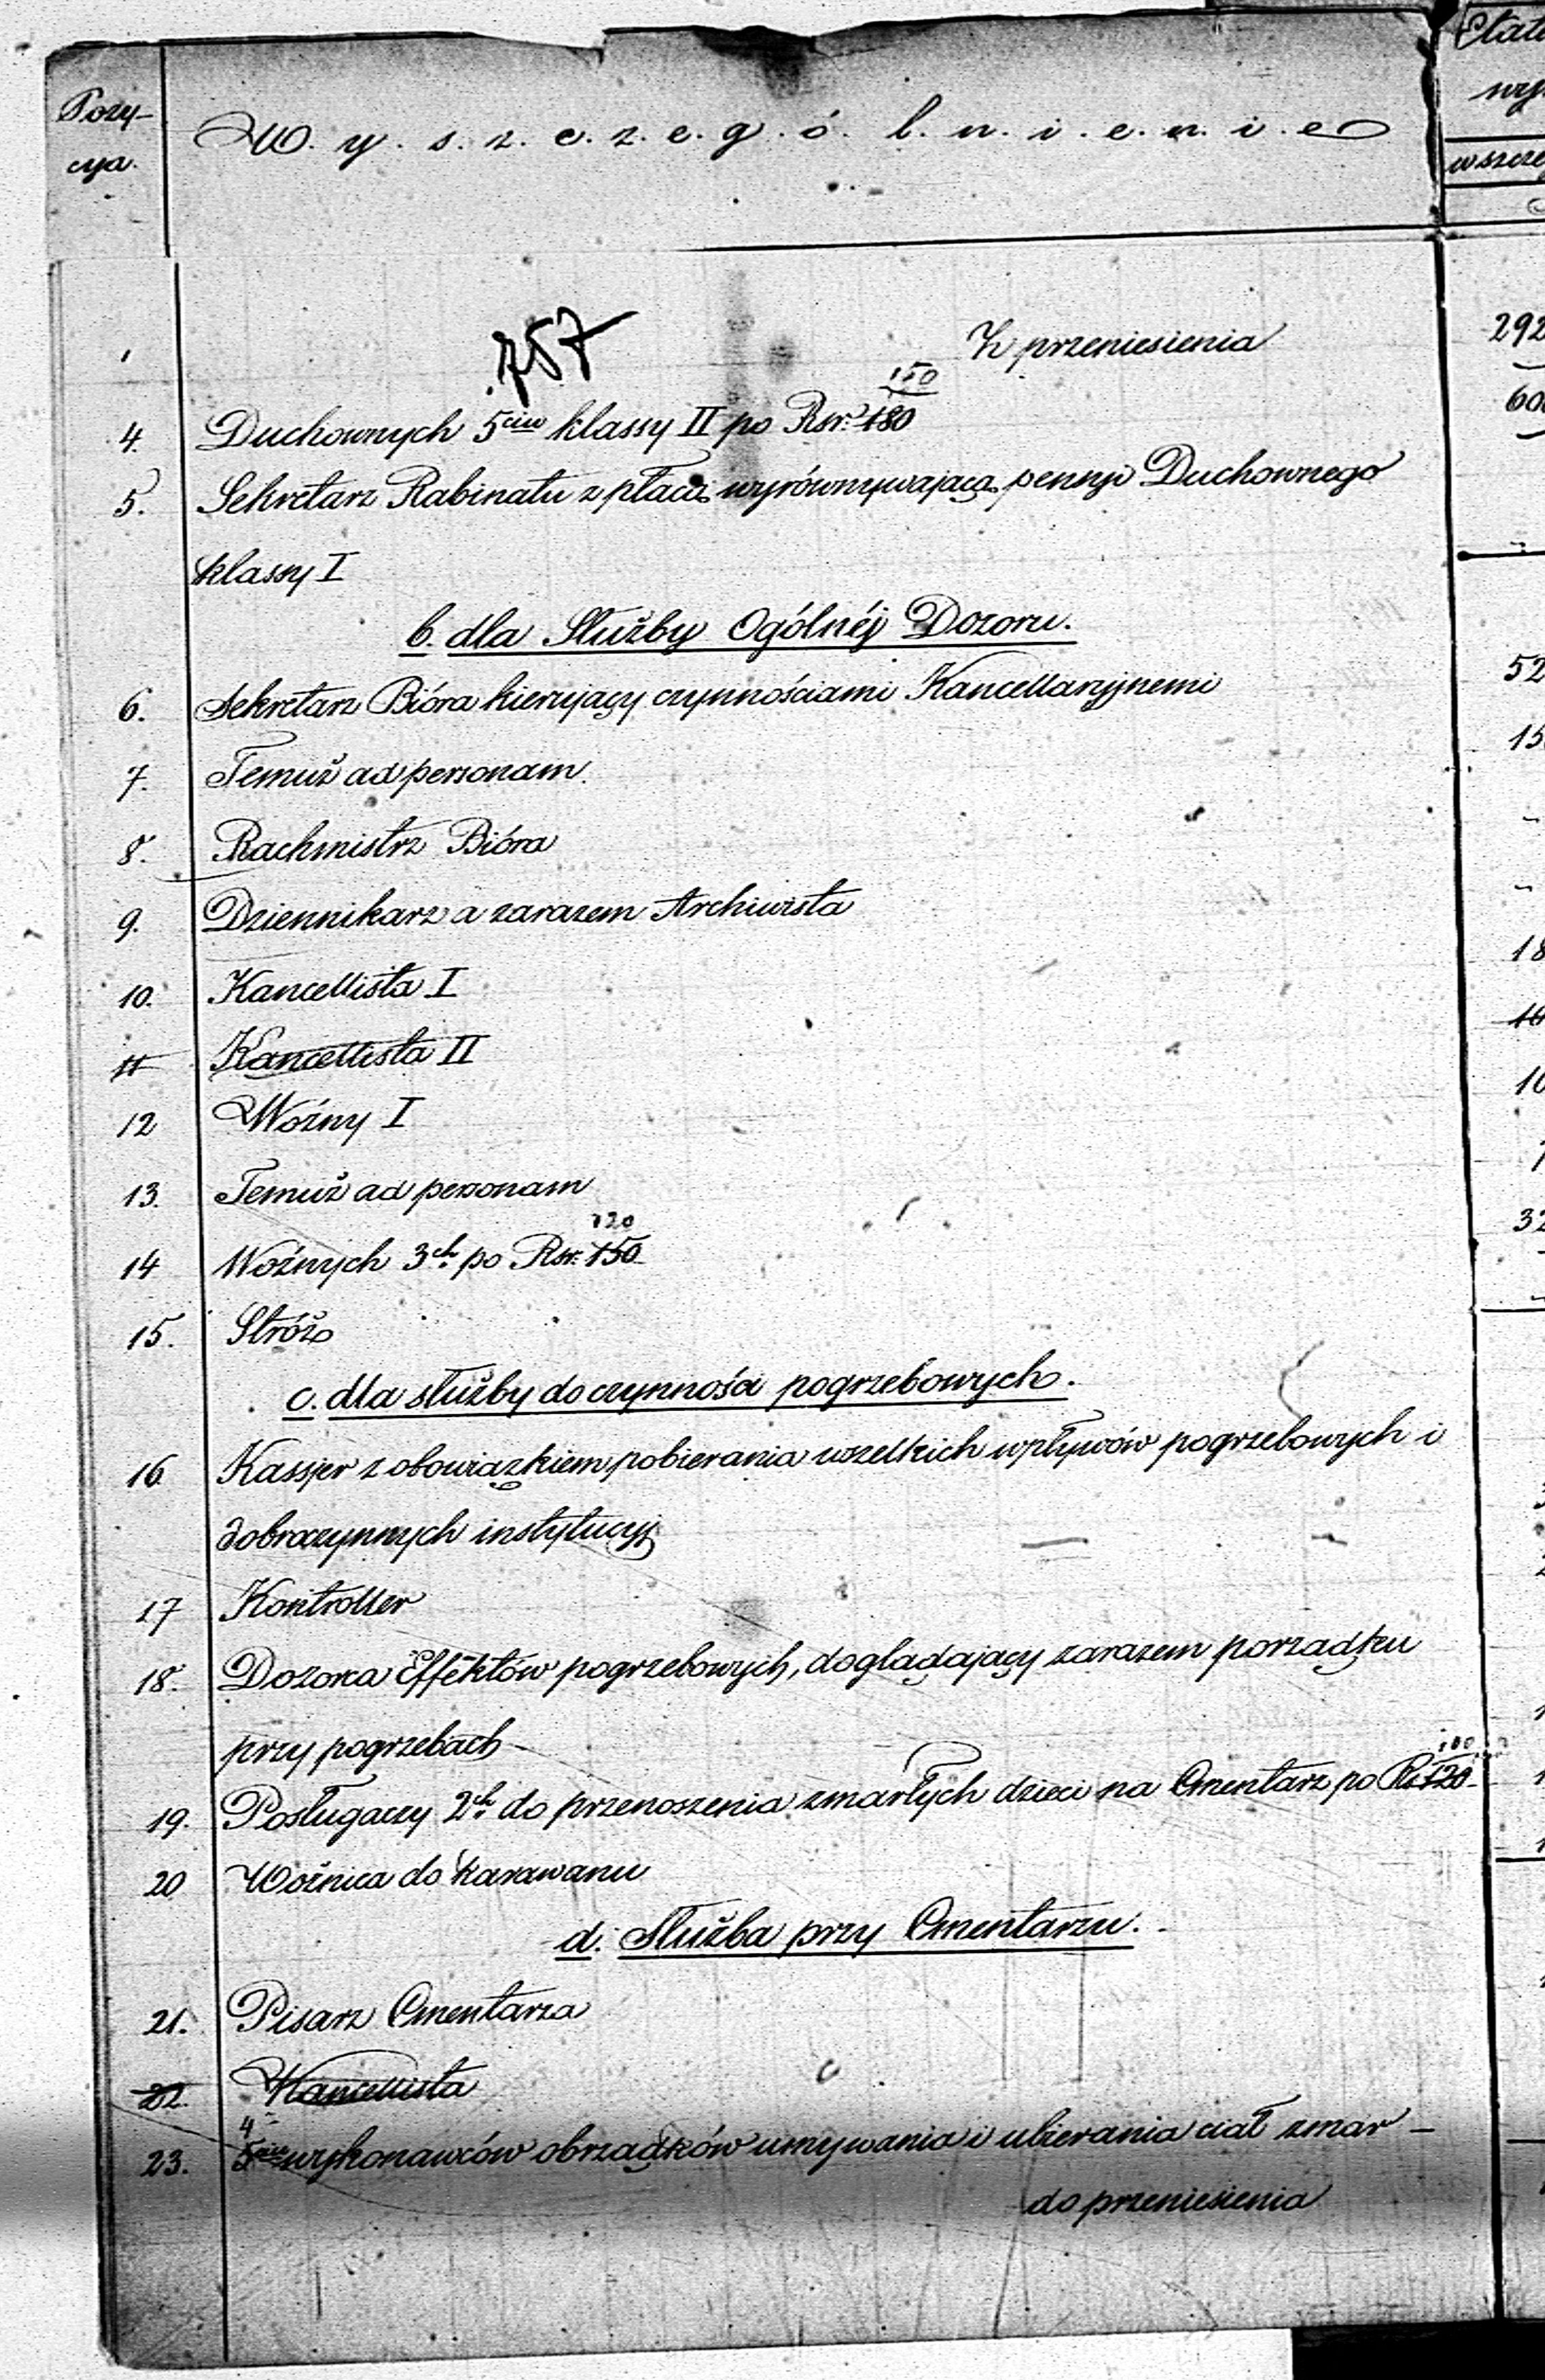 Pozy-
cya.
W. y. s. z. c. z. e. g. ó. l. n. i. e. n. i. e
Etat
wy
wszcze
757
Z przeniesienia
292
150
4. Duchownych 5ciu klassy II po Rsr. 180
60
5. Sekretarz Rabinatu z płacą wyrównywającą pensyi Duchownego
klassy I
b. dla Służby Ogólnéj Dozoru.
6. Sekretarz Bióra kierujący czynnościami Kancellaryjnemi
52
7. Temuż ad personam.
15
8. Rachmistrz Bióra
9. Dziennikarz a zarazem Archiwista
10. Kancellista I
18
11 Kancellista II
12 Woźny I
10
13. Temuż ad personam
120
14 Woźnych 3ch po Rsr. 150
32
15. Stróż
c. dla służby do czynności pogrzebowych.
16 Kassjer z obowiązkiem pobierania wszelkich wpływów pogrzebowych i
dobroczynnych instytucyj
17 Kontroller
18. Dozorca Effektów pogrzebowych, doglądający zarazem porządku
przy pogrzebach
100
19. Posługaczy 2ch do przenoszenia zmarłych dzieci na Cmentarz po Rs 120
20 Woźnica do karawanu
d. Służba przy Cmentarzu.
21. Pisarz Cmentarza
22. Kancellista
4
23. 5ciu wykonawców obrządków umywania i ubierania ciał zmar-
do przeniesienia